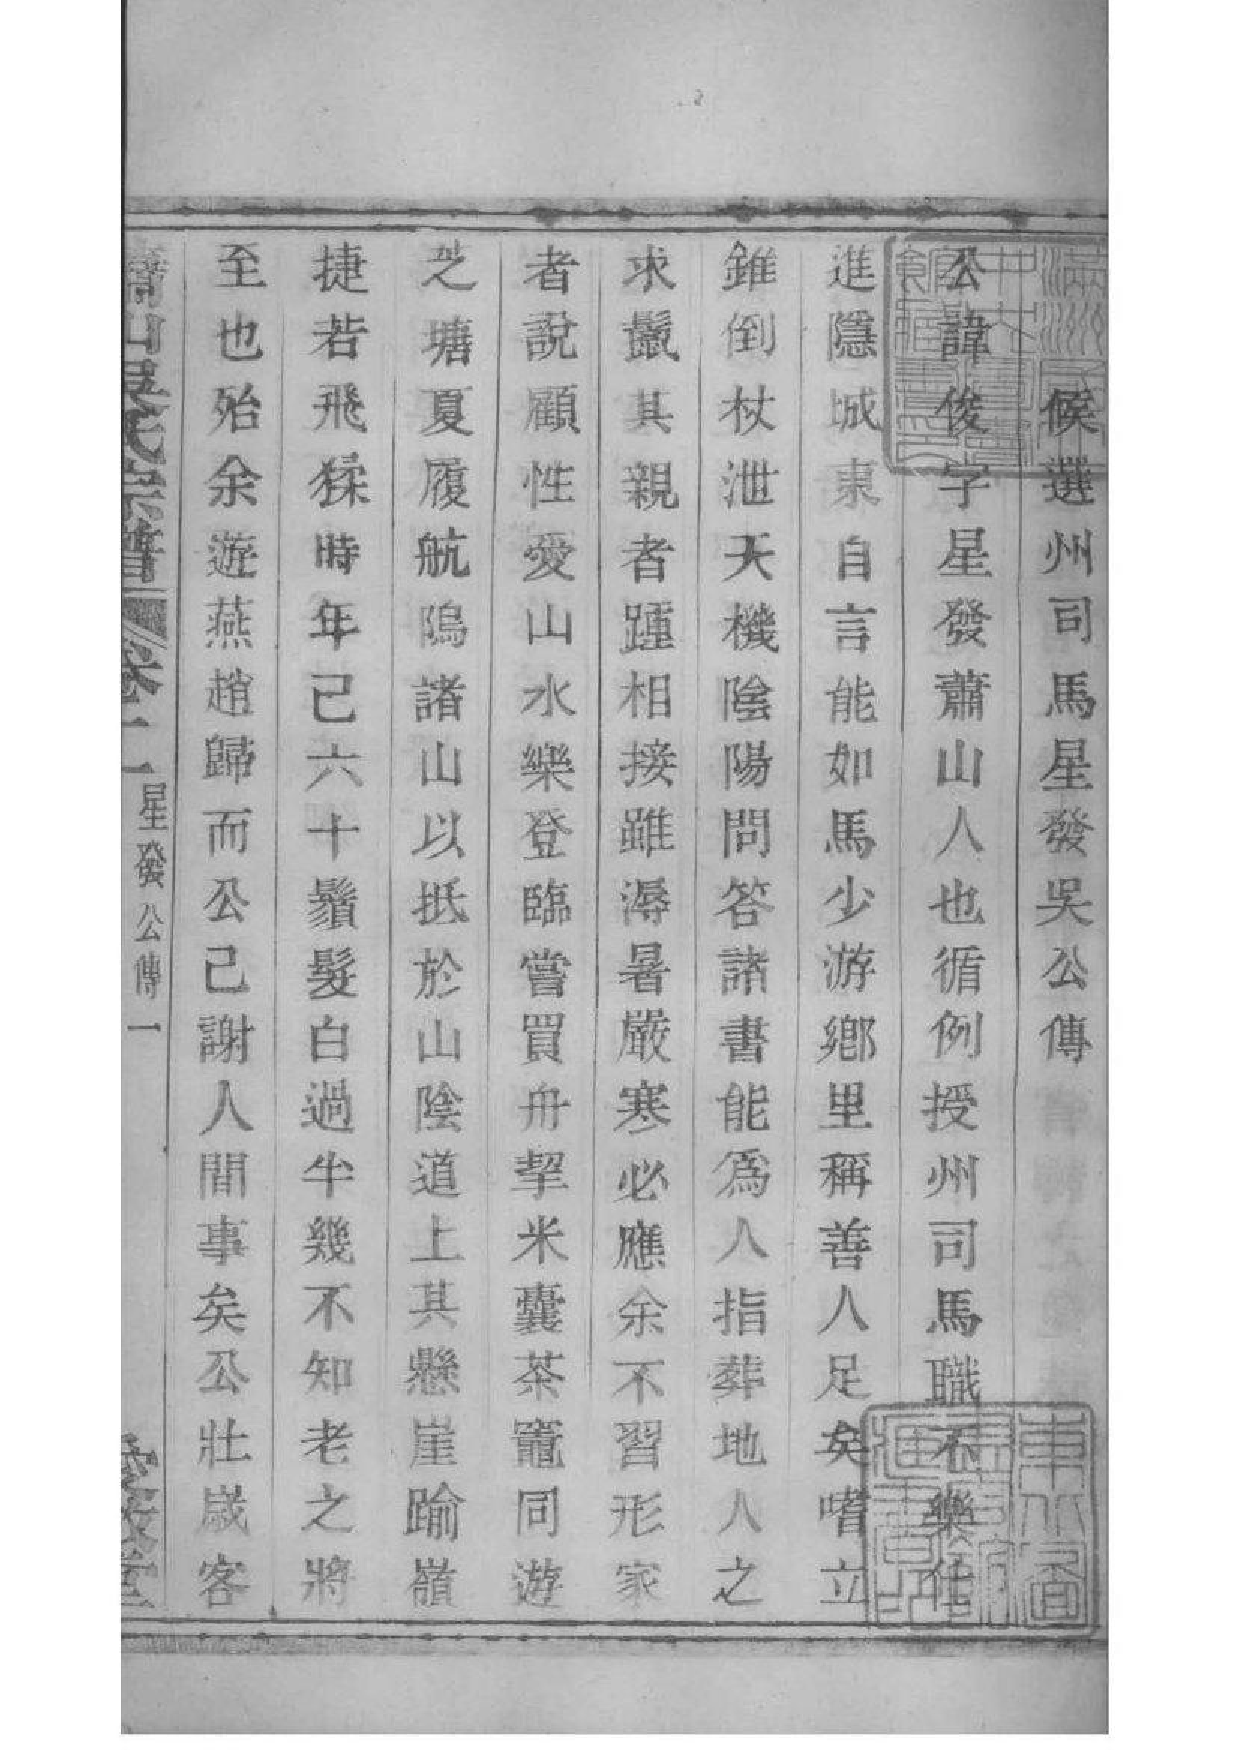 候選州司馬星發吳公傳
公諱俊字星發蕭山人也循例授州司馬職不樂仕
進隱城東自言能如馬少游鄉里稱善人足矣嗜立
錐倒杖泄天機陰陽問答諸書能為人指葬地人之
求鬣其親者踵相接雖溽暑嚴寒必應余不習形家
者說顧性愛山水樂登臨嘗買舟挈米囊茶竈同遊
之塘夏履航塢諸山以抵於山陰道上其懸崖踰嶺
捷若飛猱時年已六十鬚髮白過半幾不知老之將
至也殆余遊燕趙歸而公已謝人間事矣公壯歲客
蕭山吳氏宗譜
卷十一
星發公傳
一